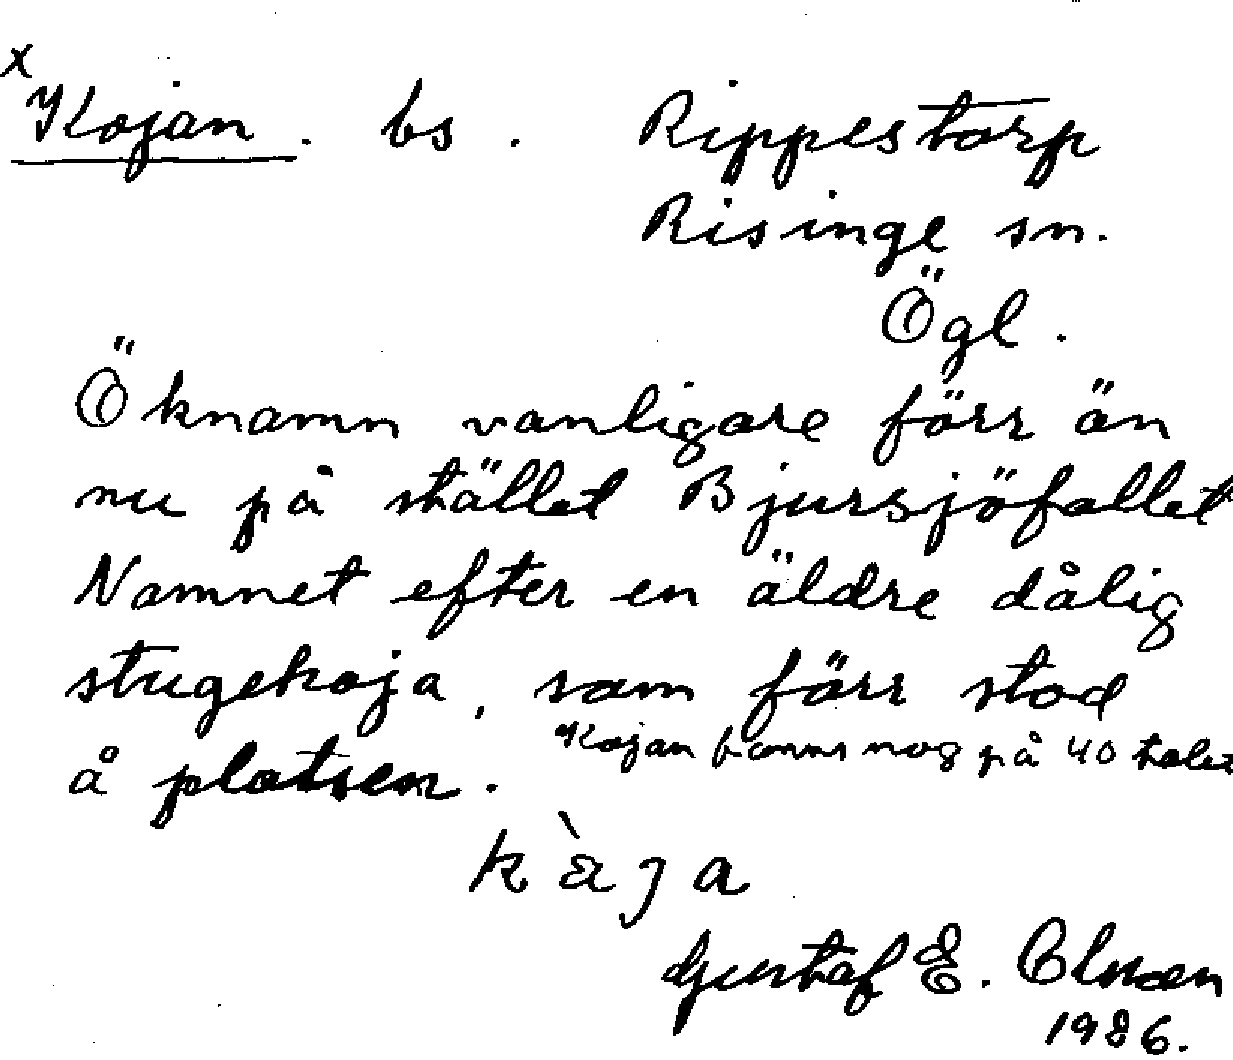 x
Kojan. bs. Rippestorp
Risinge sn.
Ögl.
Öknamn vanligare förr än
nu på stället Bjursjöfallet
Namnet efter en äldre dålig
stugekoja, som förr stod
å platsen. Kojan fanns nog på 40 talet
kàja
Gustaf E. Olsson
1986.